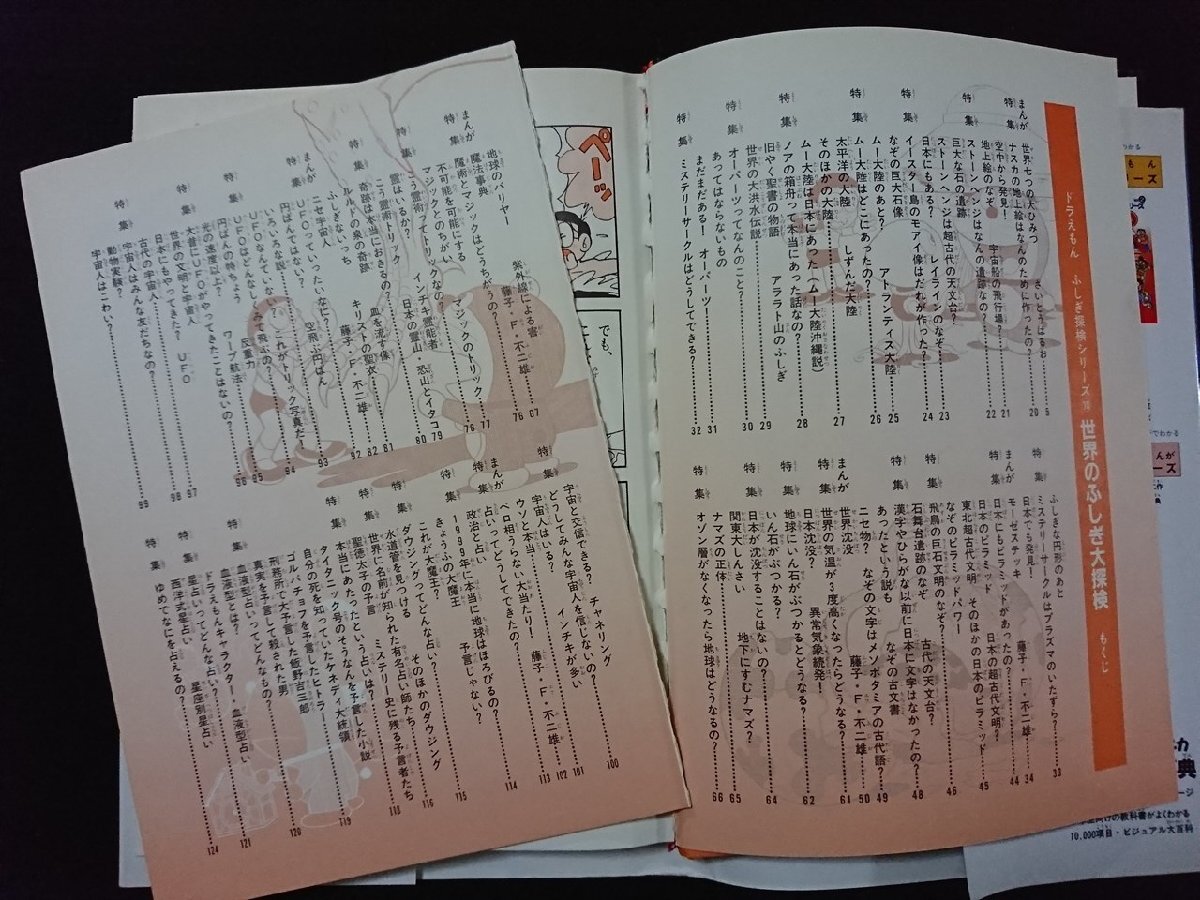 ドラえもん ふしぎ探検シリーズ
世界のふしぎ大探検
もくじ
まんが
世界七つの大ひみつ
さいとうはるお
特集
ナスカの地上絵はなんのために作ったの? 20
空中から発見! 宇宙船の飛行場? 21
地上絵のなぞ なんの遺跡なの? 22
特集
ストーンヘンジは超古代の天文台?
巨大な石の遺跡
ストーンヘンジはなぞ
レイラインのなぞ 23
日本にもある?
特集
イースター島のモアイ像はだれが作った? 24
なぞの巨大石像 25
特集
ムー大陸のあと? アトランティス大陸 26
ムー大陸はどこにあったの?
太平洋の大陸 しずんだ大陸
そのほかの大陸 27
ムー大陸は日本にあった「ムー大陸沖縄説」 28
特集
ノアの箱舟って本当にあった話なの?
旧やく聖書の物語 アララト山のふしぎ 29
世界の大洪水伝説 30
特集
オーパーツってなんのこと?
あってはならないもの 31
まだまだある! オーパーツ! 32
特集
ミステリーサークルはどうしてできる?
特集
ふしぎな円形のあと
ミステリーサークルはプラズマのいたずら? 33
日本でも発見!
まんが
モーゼステッキ 藤子・F・不二雄 34
特集
日本にもピラミッドがあったの? 44
日本のピラミッド 日本の超古代文明?
東北超古代文明 そのほかの日本のピラミッド 45
なぞのピラミッドパワー 46
特集
飛鳥の巨石文明のなぞ?
石舞台遺跡のなぞ 古代の天文台?
特集
漢字やひらがな以前に日本に文字はなかったの? 48
あったという説も なぞの古文書
ニセ物? なぞの文字はメソポタミアの古代語? 49
まんが
世界沈没 藤子・F・不二雄 50
特集
世界の気温が3度高くなったらどうなる? 61
日本沈没? 異常気象続発! 62
特集
地球にいん石がぶつかるとどうなる?
いん石がぶつかる? 64
特集
日本が沈没することはないの?
関東大しんさい 地下にすむナマズ? 65
ナマズの正体
特集
オゾン層がなくなったら地球はどうなるの? 66
地球のバリヤー 紫外線による害
まんが
魔法事典 藤子・F・不二雄
特集
魔術とマジックはどうちがうの? 76
不可能を可能にする マジックのトリック
マジックとのちがい 77
特集
霊はいるか? 日本の霊山 恐山とイタコ 79
こう霊術トリック インチキ霊能者 80
特集
奇跡は本当におきるの? 81
ルルドの泉の奇跡 血を流す像 82
キリストの聖衣
まんが
ニセ宇宙人 藤子・F・不二雄
特集
UFOっていったいなに? 92
空飛ぶ円ばん 93
円ばんではない?
いろいろな説 これがトリック写真だ! 94
UFOなんていない?
特集
UFOはどんなしくみで飛ぶの? 95
円ばんの特ちょう 反重力
光の速度以上? ワープ航法 96
特集
大昔にUFOがやってきたことはないの? 97
世界の文明と宇宙人
日本にもやってきた? UFO 98
古代の宇宙人
特集
宇宙人はみんな友だちなの?
動物実験?
宇宙人はこわい? 99
特集
宇宙と交信できる? チャネリング 100
どうしてみんな宇宙人を信じないの? 101
宇宙人はいる? インチキが多い 102
まんが
ウソと本当 藤子・F・不二雄 113
特集
占いってどうしてできたの? 114
政治と占い
特集
1999年に本当に地球はほろびるの? 115
きょうふの大魔王 予言じゃない?
これが大魔王?
特集
ダウジングってどんな占い? 116
水道管を見つける そのほかのダウジング
特集
世界に名前が知られた有名占い師たち
聖徳太子の予言 ミステリー史に残る予言者たち 118
特集
本当にあたったという占いは?
タイタニック号のそうなんを予言した小説 119
自分の死を知っていたケネディ大統領
ゴルバチョフを予言したヒトラー
刑務所で大予言した飯野吉三郎
真実を予言して殺された男 120
特集
血液型占いってどんなもの?
血液型とは? 121
ドラえもんキャラクター・血液型占い
特集
星占いってどんな占い?
西洋式星占い 星座別星占い 124
特集
ゆめでなにを占えるの?
ペーッ
でも、
10,000項目・ビジュアル大百科